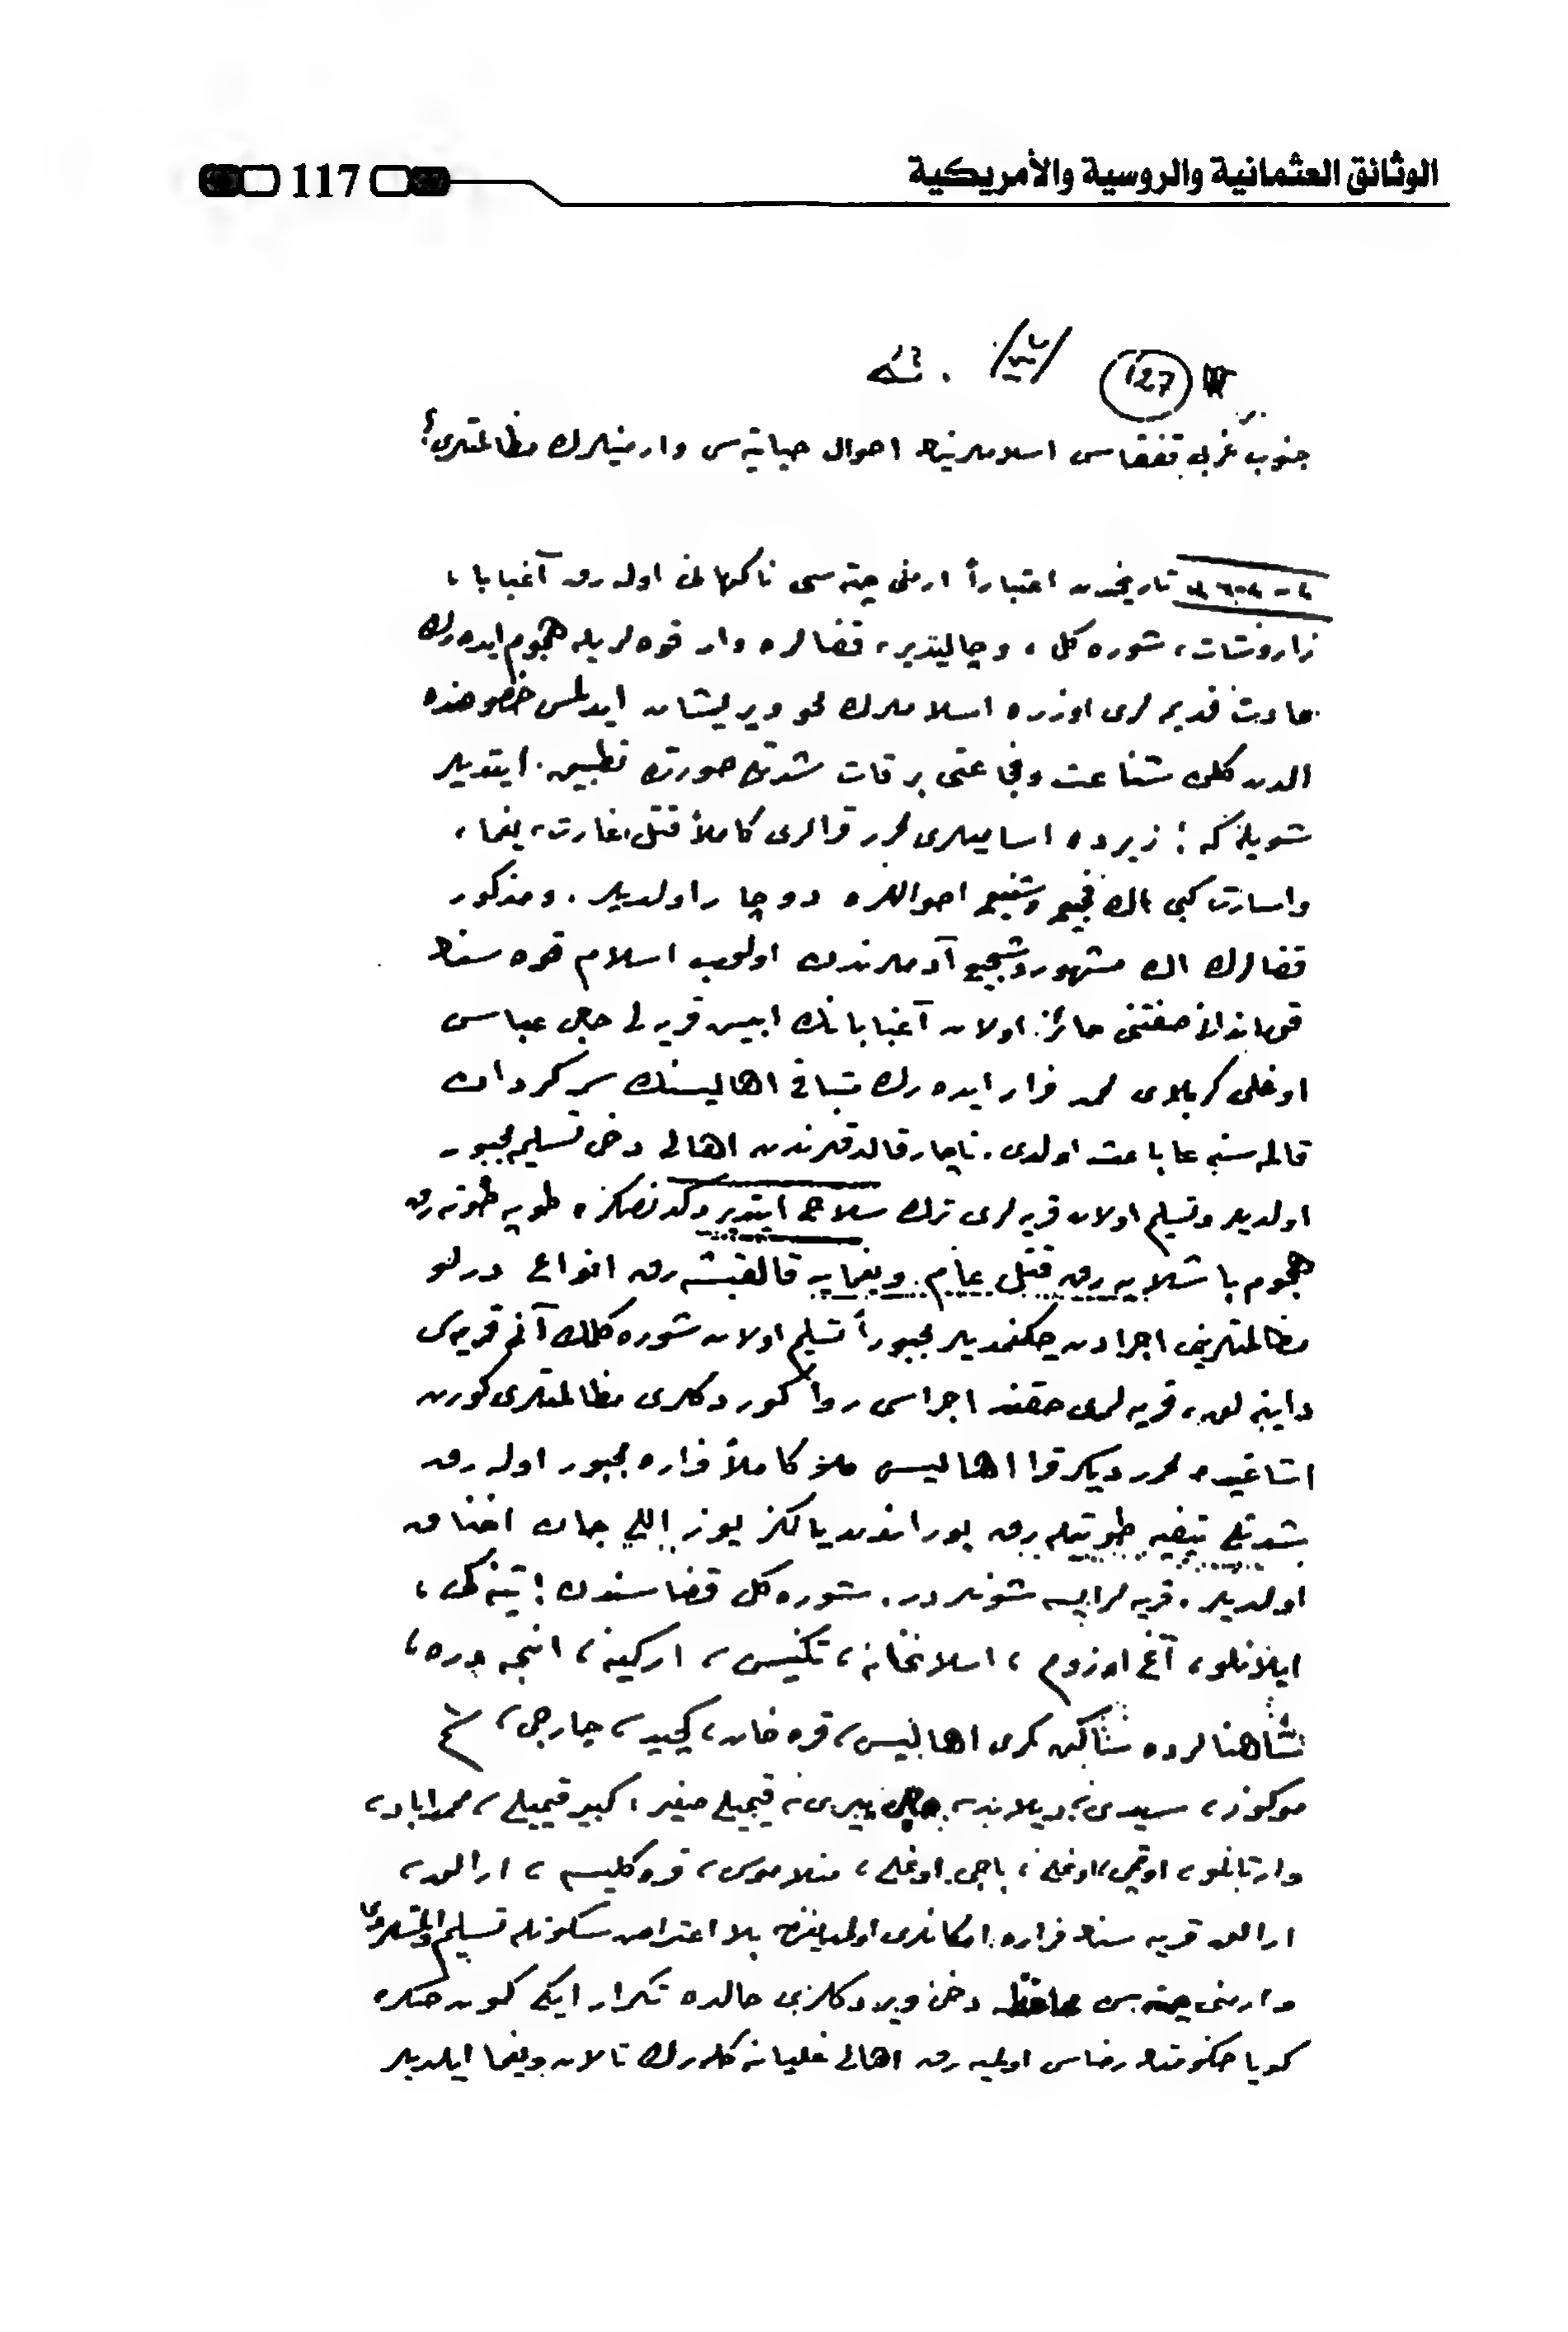 117
الوثائق العثمانية والروسية والأمريكية
127
جنوب غربی قفقاس اسلاملرینك احوال حیاتیه‌سی وارمنیلرك مظالملری؛
تاریخندن اعتباراً ارمنی چته‌سی ناكهانی اوله‌رق آغبابا،
زاروشات، شوره‌كل، وچالدیر، قضالره وار قوه‌لریله هجوم ایده‌رك
عادت قدیمه‌لری اوزره اسلاملرك محو وپریشان ایدلمسی خصوصنده
الدن كلن شناعت وفجاعتی بر قات شدتلی صورتده تطبیق ایتدیلر
شویله‌كه: زیرده اسامیلری محرر قرالری كاملاً قتل، غارت، یغما،
واسارت كبی اك فجیع وشنیع احوالله دوچار اولدیلر. ومذكور
قضالرك اك مشهور وشجیع آدملرندن اولوب اسلام قوه‌سنك
قوماندانی صفتنی حائز اولان آغبابانك ابیس قریه‌لی حاجی عباس
اوغلی كربلای محمد فرار ایده‌رك بتباقی اهالیسنك سركردان
قالمه‌سنه باعث اولدی. ناچار قالدقلرندن اهالی دخی تسلیم مجبور
اولدیلر وتسلیم اولان قریه‌لری ترك سلاح ایتدیردكدنصكره طوپه طوته‌رق
هجوم باشلایه‌رق قتل عام ویغمایه قالقیشه‌رق انواع درلو
مظالملرینی اجرادن چكنمدیلر مجبوراً تسلیم اولان شوره‌كلك آنی قریه‌سی
داینه‌لق، قریه‌لری حقنده اجراسی روا كوردكلری مظالملری كورن
اشاغیده محرر دیكر قرا اهالیسی كاملاً فراره مجبور اوله‌رق
شدتلی تیفیه طوتیله‌رق بوراندن یالكز یوز اللی جان اختناق
اولدیلر. قریه‌لر ایسه شونلردر. شوره‌كل قضاسندن؛
ایلانلو، آغ اوزوم، اسلانخانه، تكنیس، اركینه، اینجه دره،
شاهنالرده ساكن اهالیسی، قره خان، كچید، چارجی،
موكوز، سیدی، دیلاندر، حاجی پیری، قیجیلی صغیر، كبیر قیجیلی، محمدآباد،
وارتانلو، اوقچی اوغلی، باجی اوغلی، منلا موسی، قره كلیسه، ارالق،
ارالق قریه‌سنك فراره امكانلری اولمدیغندن بلا اعتراض سكونله تسلیم
وارمنی چته‌سی محافظه دخی ویردكلری حالده تكرار ایكی كون صكره
كویا حكومتك رضاسی اولمیه‌رق اهالی غلیانه كله‌رك تالان ویغما ایلدیلر